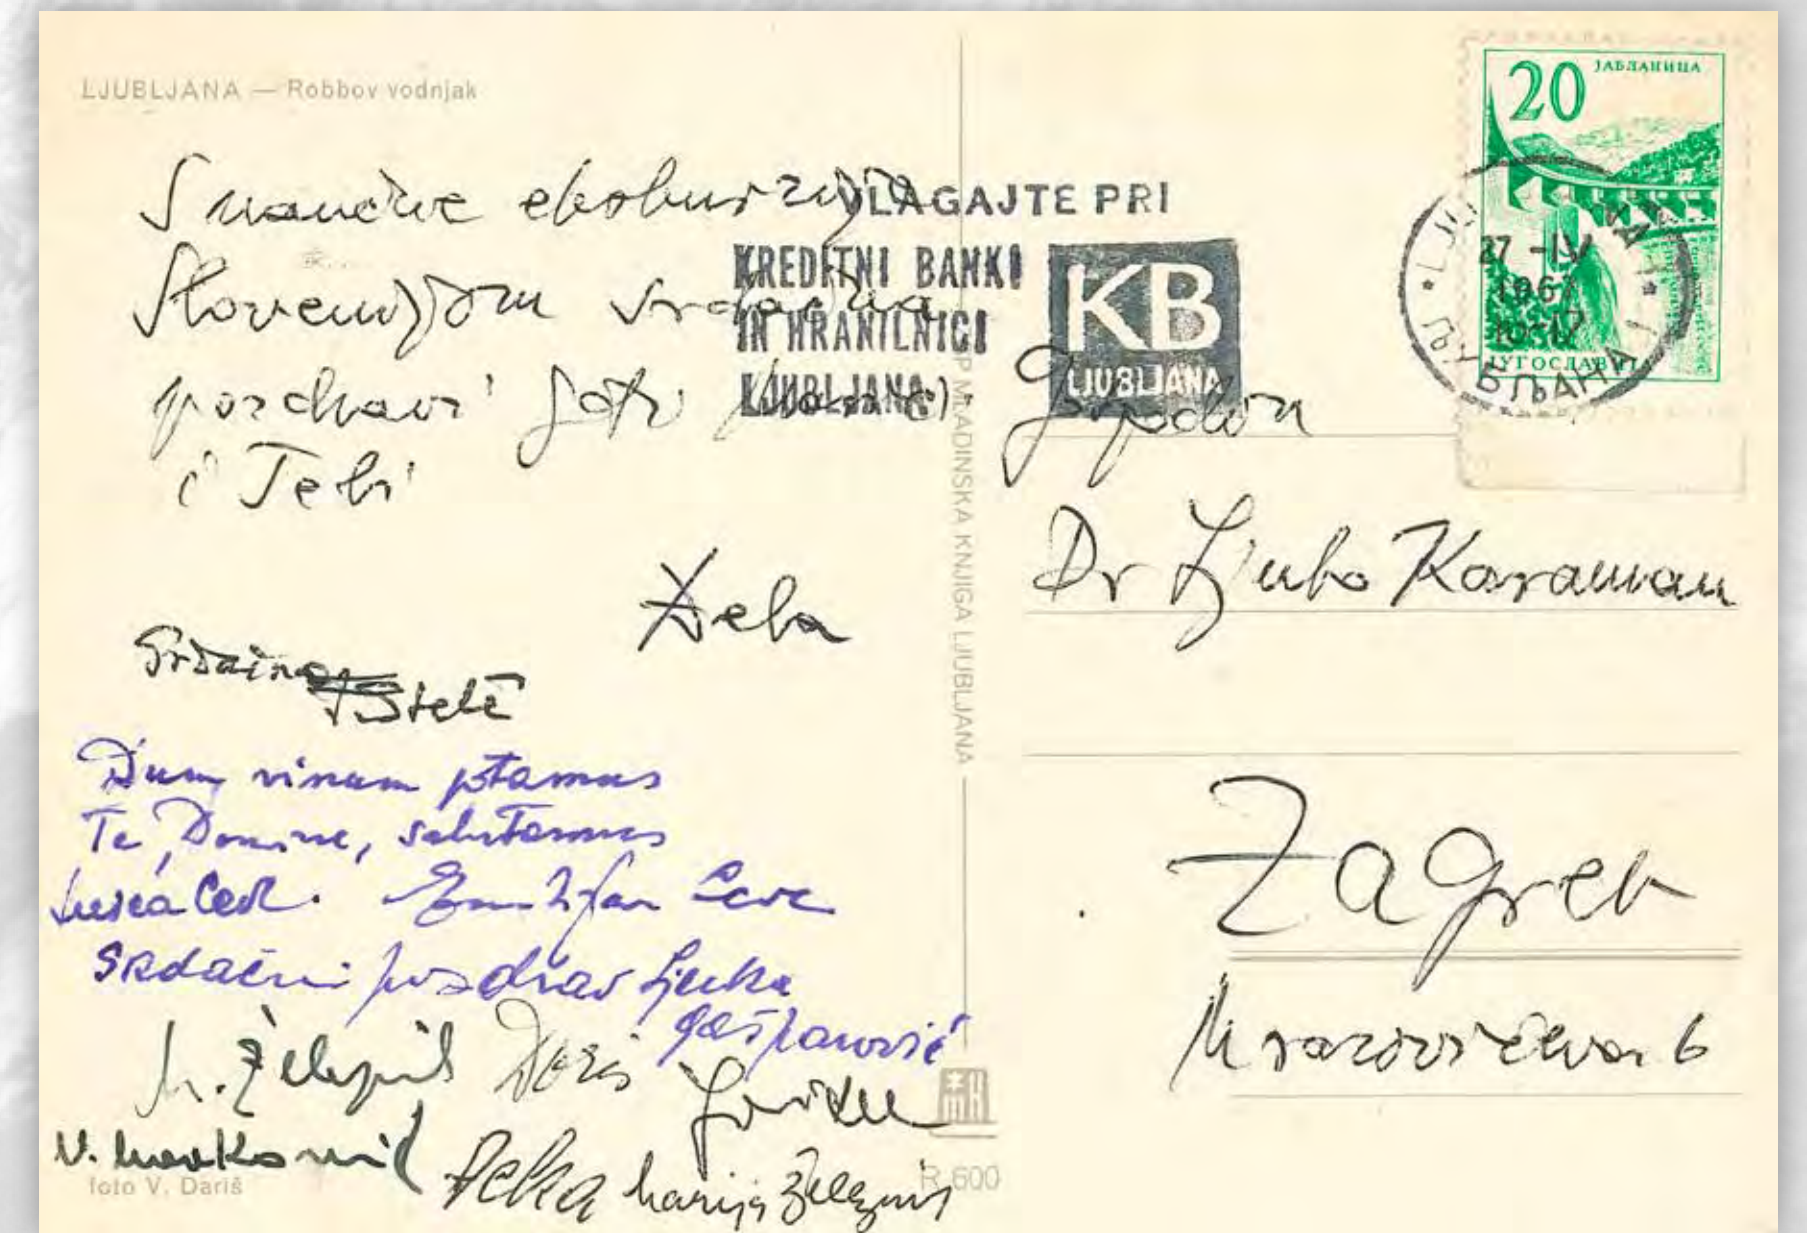 LJUBLJANA — Robbov vodnjak
S naučne ekskurzije
Slovenijom srdačna
pozdravi
i Tebi
Dela
Srdačno
Stelè
Dum vinum potamus
Te, Domine, salutamus
Emilijan Cevc
Srdačni pozdrav Ljerka
Gašparović
V. Marković
Marija Železnik
foto V. Dariš
R 600
ČP MLADINSKA KNJIGA LJUBLJANA
VLAGAJTE PRI
KREDITNI BANKI
IN HRANILNICI
LJUBLJANA
KB
LJUBLJANA
20
ЈАБЛАНИЦА
ЈУГОСЛАВИЈА
27 -IV
1967
10-12
ЉУБЉАНА
Gospodin
Dr Ljubo Karaman
Zagreb
Mrazovićeva 6